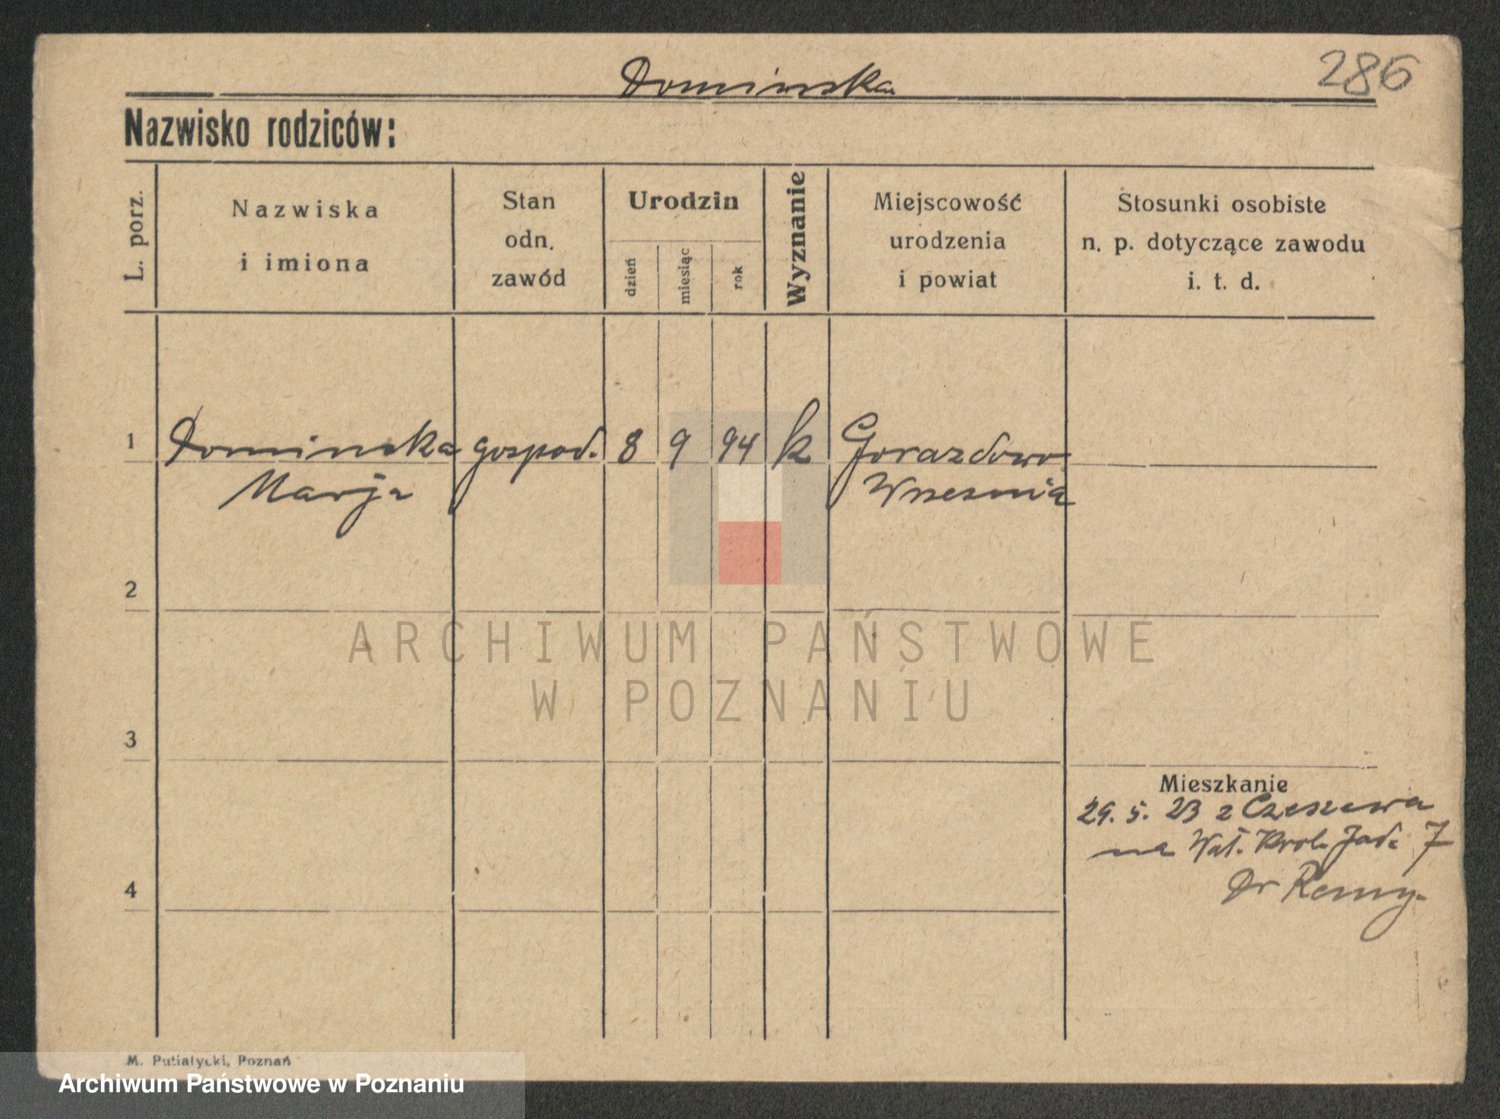 Dominska
286
Nazwisko rodziców:
L. porz.
Nazwiska
i imiona
Stan
odn.
zawód
Urodzin
dzień
miesiąc
rok
Wyznanie
Miejscowość
urodzenia
i powiat
Stosunki osobiste
n. p. dotyczące zawodu
i. t. d.
1 Dominska gospod. 8 9 94 k Gorazdowo
Marja Wrzesnia
2
3
4
Mieszkanie
29. 5. 23 z Czeszewa
na Wał. Krol. Jad. 7
Dr Remy.
ARCHIWUM PAŃSTWOWE
W POZNANIU
M. Putiatycki, Poznań
Archiwum Państwowe w Poznaniu